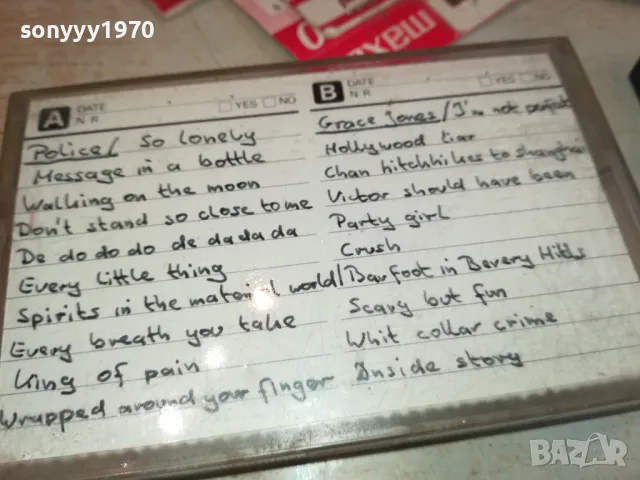 sonyyy1970
MAXELL
A DATE N R YES NO
Police / So lonely
Message in a bottle
Walking on the moon
Don't stand so close to me
De do do do de da da da
Every little thing
Spirits in the material world
Every breath you take
King of pain
Wrapped around your finger
B DATE N R YES NO
Grace Jones / I'm not perfect
Hollywood liar
Chan hitchhikes to shanghai
Victor should have been
Party girl
Crush
Barfoot in Bevery Hills
Scary but fun
Whit collar crime
Inside story
BAZAR